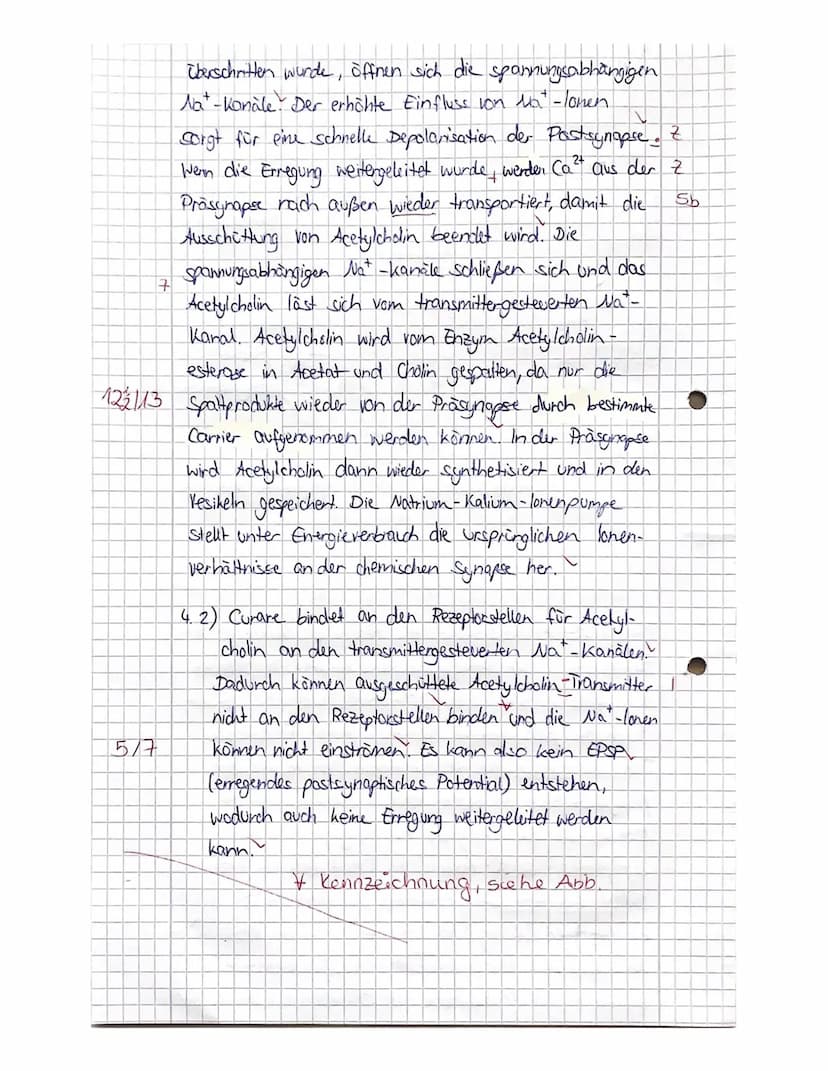 überschritten wurde, öffnen sich die spannungsabhängigen
Na⁺-Kanäle. Der erhöhte Einfluss von Na⁺-Ionen
sorgt für eine schnelle Depolarisation der Postsynapse. Z
Wenn die Erregung weitergeleitet wurde, werden Ca²⁺ aus der Z
Präsynapse nach außen wieder transportiert, damit die Sb
Ausschüttung von Acetylcholin beendet wird. Die
7 spannungsabhängigen Na⁺-Kanäle schließen sich und das
Acetylcholin löst sich vom transmittergesteuerten Na⁺-
Kanal. Acetylcholin wird vom Enzym Acetylcholin-
esterase in Acetat und Cholin gespalten, da nur die
12½/13 Spaltprodukte wieder von der Präsynapse durch bestimmte
Carrier aufgenommen werden können. In der Präsynapse
wird Acetylcholin dann wieder synthetisiert und in den
Vesikeln gespeichert. Die Natrium-Kalium-Ionenpumpe
stellt unter Energieverbauch die ursprünglichen Ionen-
verhältnisse an der chemischen Synapse her.
4. 2) Curare bindet an den Rezeptorstellen für Acetyl-
cholin an den transmittergesteuerten Na⁺-Kanälen.
Dadurch können ausgeschüttete Acetylcholin-Transmitter I
nicht an den Rezeptorstellen binden und die Na⁺-Ionen
5/7 können nicht einströmen. Es kann also kein EPSP
(erregendes postsynaptisches Potential) entstehen,
wodurch auch keine Erregung weitergeleitet werden
kann.
Kennzeichnung, siehe Abb.